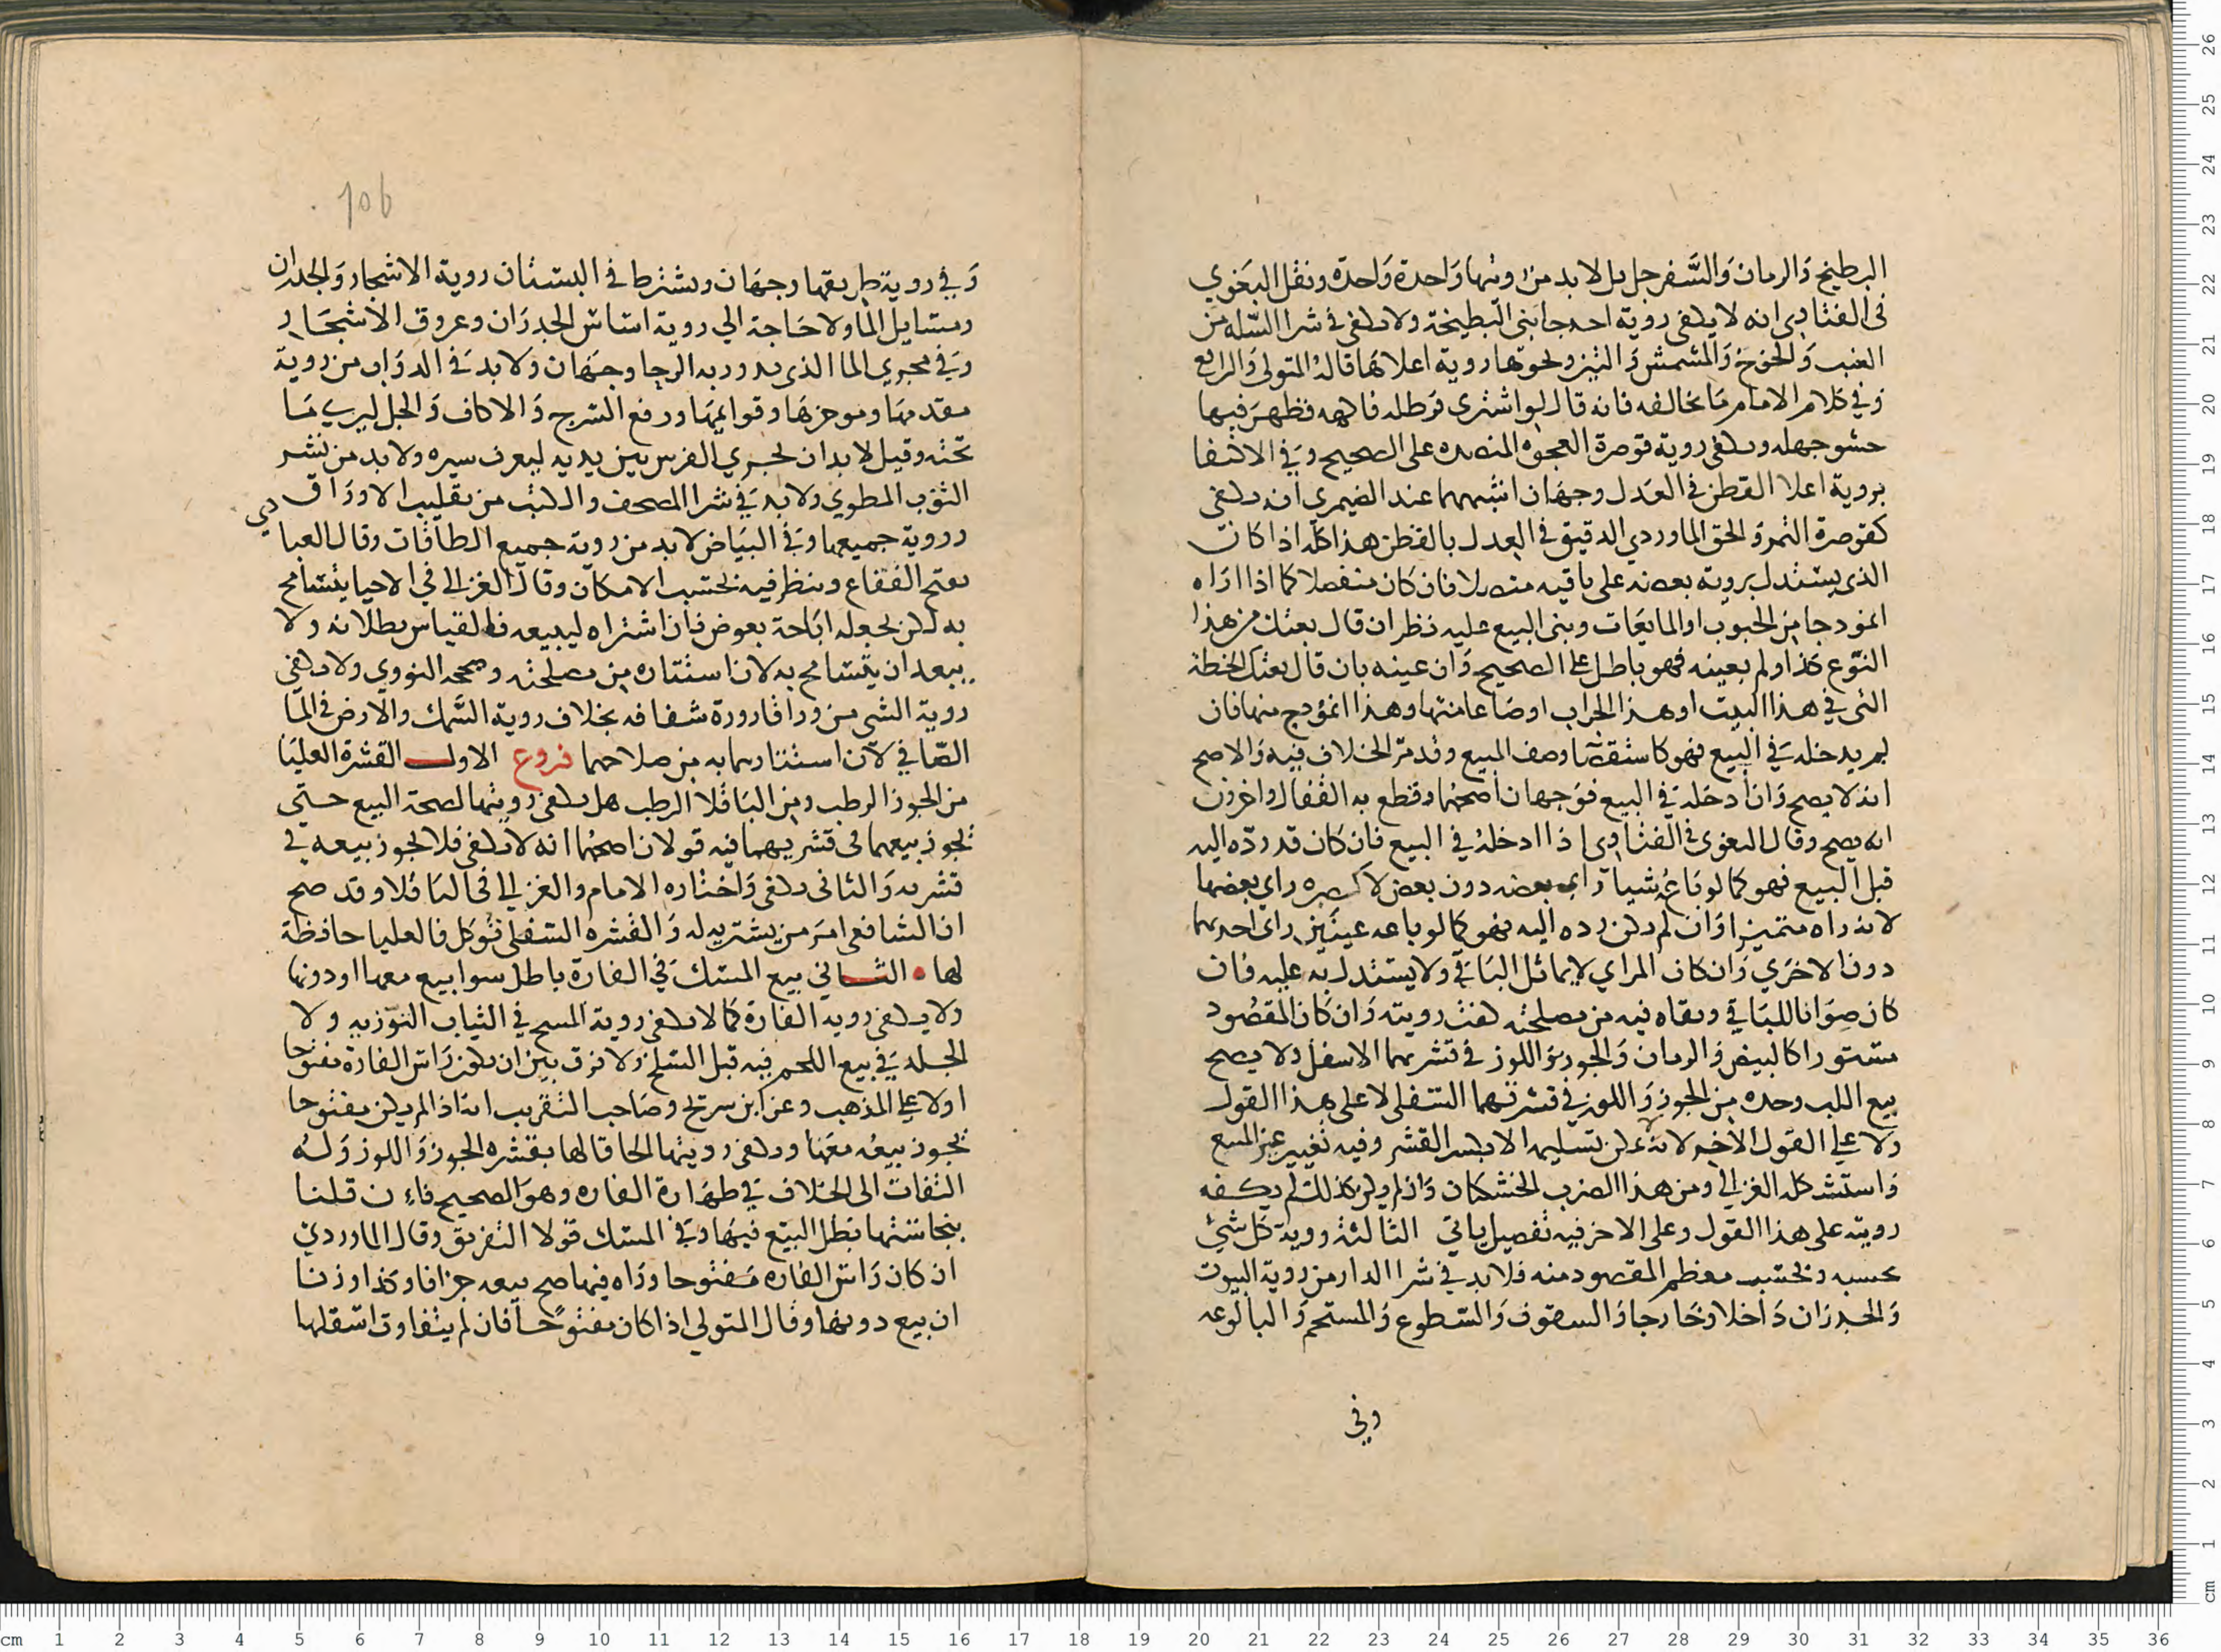 البطيخ والرمان والسفرجل بل لابد من رويتها واحدة واحدة ونقل البغوي
في الفتاوي انه لا يكفي روية احد جانبي البطيخة ولا يكفي في شرا السله من
العنب والخوخ والمشمش والتين ونحوها روية اعلاها قاله المتولي والرافعي
وفي كلام الامام ما يخالفه فانه قال لو اشترى قرطله فاكهه فظهر فيها
حشو جهله ويكفي روية قوصرة العجوه المنصده على الصحيح وفي الاكتفا
بروية اعلا القطن في العدل وجهان اشبههما عند الضيمري انه يكفي
كقوصرة التمر والحق الماوردي الدقيق في العدل بالقطن هذا كله اذا كان
الذي يستدل برويته بعضه على باقيه متصلا فان كان منفصلا كما اذا اراه
انموذجا من الحبوب او المايعات وبنى البيع عليه نظر ان قال بعتك من هذا
النوع كذا ولم يعينه فهو باطل على الصحيح وان عينه بان قال بعتك الحنطة
التي في هذا البيت او هذا الجراب او صاعا منها وهذا انموذج منها فان
لم يدخله في البيع فهو كاستقصا وصف المبيع وقد مر الخلاف فيه والاصح
انه لا يصح وان ادخله في البيع فوجهان اصحهما وقطع به القفال واخرون
انه يصح وقال البغوي في الفتاوي اذا ادخله في البيع فان كان قد رده اليه
قبل البيع فهو كما لو باعه شيا راى بعضه دون بعض لا كعبره راى بعضها
لانه راه متميزا وان لم يكن رده اليه فهو كما لو باعه عينين راى احديهما
دون الاخري وان كان المراي لا يماثل الباقي ولا يستدل به عليه فان
كان صوانا للباقي وبقاه فيه من مصلحته كفت رويته وان كان المقصود
مستورا كالبيض والرمان والجوز واللوز في قشريهما الاسفل ولا يصح
بيع اللب وحده من الجوز واللوز في قشرتهما السفلى لا على هذا القول
ولا على القول الاخر لانه لا يمكن تسليمه الا بكسر القشر وفيه تغيير عين المبيع
واستشكله الغزالي ومن هذا الضرب الخشكان واذا لم يكن كذلك لم يكفه
رويته على هذا القول وعلى الاخر فيه تفصيل ياتي الثالثة روية كل شي
بحسبه وبحسب معظم المقصود منه فلابد في شرا الدار من روية البيوت
والجدران داخلا وخارجا والسقوف والسطوح والمستحم والبالوعه
وفي
106
وفي روية طريقها وجهان ويشترط في البستان روية الاشجار والجدران
ومسايل الما ولا حاجة الي روية اساس الجدران وعروق الاشجار
وفي مجري الما الذي يدور به الرحا وجهان ولابد في الدواب من روية
مقدمها وموخرها وقوايمها ورفع السرج والاكاف والجل ليري ما
تحته وقيل لابد ان يجري الفرس بين يديه ليعرف سيره ولابد من نشر
الثوب المطوي ولابد في شرا المصحف والكتب من تقليب الاوراق
وروية جميعها وفي البياض لابد من روية جميع الطاقات وقال العبادي
يفتح الفقاع وينظر فيه بحسب الامكان وقال الغزالي في الاحيا يتسامح
به لكن يجعله اباحة بعوض فان اشتراه ليبيعه فالقياس بطلانه ولا
يبعد ان يتسامح به لان استتاره من مصلحته وصححه النووي ولا يكفي
روية الشي من ورا قارورة شفافه بخلاف روية السمك والارض في الما
الصافي لان استتارهما به من صلاحهما فروع الاول القشرة العليا
من الجوز الرطب ومن الباقلا الرطب هل يكفي رويتها لصحة البيع حتي
يجوز بيعهما في قشريهما فيه قولان اصحهما انه لا يكفي فلا يجوز بيعه في
قشريه والثاني يكفي واختاره الامام والغزالي في الباقلا وقد صح
ان الشافعي امر من يشتريه له والقشره السفلي توكل فالعليا حافظة
لها الثاني بيع المسك في الفارة باطل سوا بيع معها او دونها
ولا يكفي رويه الفارة كما لا يكفي روية المسح في الثياب التوزيه ولا
الجلد في بيع اللحم فيه قبل السلخ ولا فرق بين ان يكون راس الفارة مفتوحا
او لا على المذهب وعن ابن سريج وصاحب التقريب انه اذا لم يكن مفتوحا
يجوز بيعه معها ويكفي رويتها الحاقا لها بقشره الجوز واللوز وله
التفات الى الخلاف في طهارة الفاره وهو الصحيح فاءن قلنا
بنجاستها بطل البيع فيها وفي المسك قولا التفريق وقال الماوردي
ان كان راس الفاره مفتوحا وراه فيها صح بيعه جزافا وكذا وزنا
ان بيع دونها وقال المتولي اذا كان مفتوحا فان لم يتفاوت اسفلها